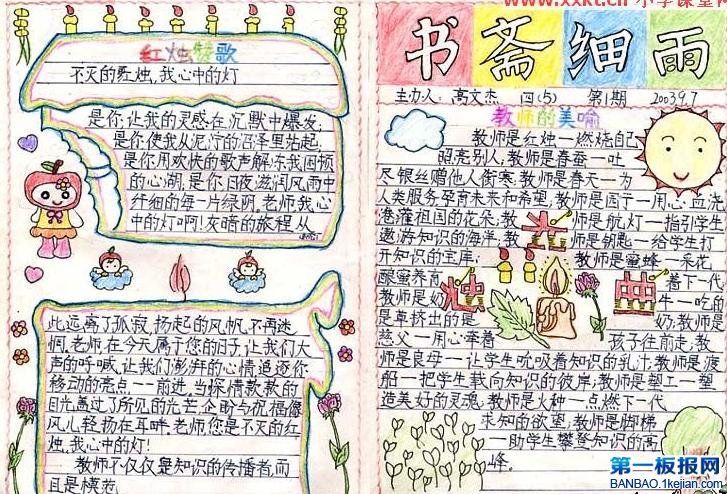 红烛赞歌
不灭的红烛,我心中的灯
是你,让我的灵感在沉默中爆发;
是你,使我从泥泞的沼泽里站起,
是你用欢快的歌声解冻我困顿
的心湖,是你日夜滋润风雨中
纤细的每一片绿阴。老师,我心
中的灯啊!灰暗的旅程从
此远离了孤寂,扬起的风帆,不再迷
惘,老师,在今天属于您的日子,让我们大
声的呼喊,让我们澎湃的心情追逐你
移动的亮点,一一前进,当深情款款的
目光盖过了所见的光芒,企盼与祝福像
风儿轻扬在耳畔,老师您是不灭的红
烛,我心中的灯!
教师不仅仅是知识的传播者,而
且是模范
www.xxkt.cn 小学课堂网
书斋细雨
主办人:高文杰 四(5) 第1期 2003.9.7
教师的美喻
教师是红烛一燃烧自己
照亮别人,教师是春蚕一吐
尽银丝赠他人御寒;教师是春天一为
人类服务孕育未来和希望,教师是园丁一用心血浇
灌祖国的花朵;教师是航灯一指引学生
遨游知识的海洋,教师是钥匙一给学生打
开知识的宝库;教师是蜜蜂一采花
酿蜜养育着下一代
教师是奶牛一吃的
是草挤出的是奶,教师是
慈父一用心牵着孩子往前走,教
师是良母一让学生吮吸着知识的乳汁,教师是渡
船一把学生载向知识的彼岸,教师是塑工一塑
造美好的灵魂,教师是火种一点燃下一代
求知的欲望,教师是脚梯
一助学生攀登知识的高
峰。
第一板报网
BANBAO.1kejian.com